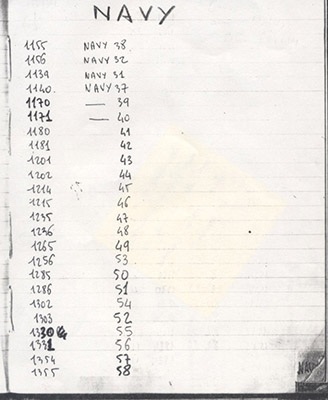 NAVY
1155 NAVY 38
1156 NAVY 32
1139 NAVY 31
1140 NAVY 37
1170 — 39
1171 — 40
1180 41
1181 42
1201 43
1202 44
1214 45
1215 46
1235 47
1236 48
1265 49
1256 53
1285 50
1286 51
1302 54
1303 52
55
1331 56
1354 57
1355 58
NAVY